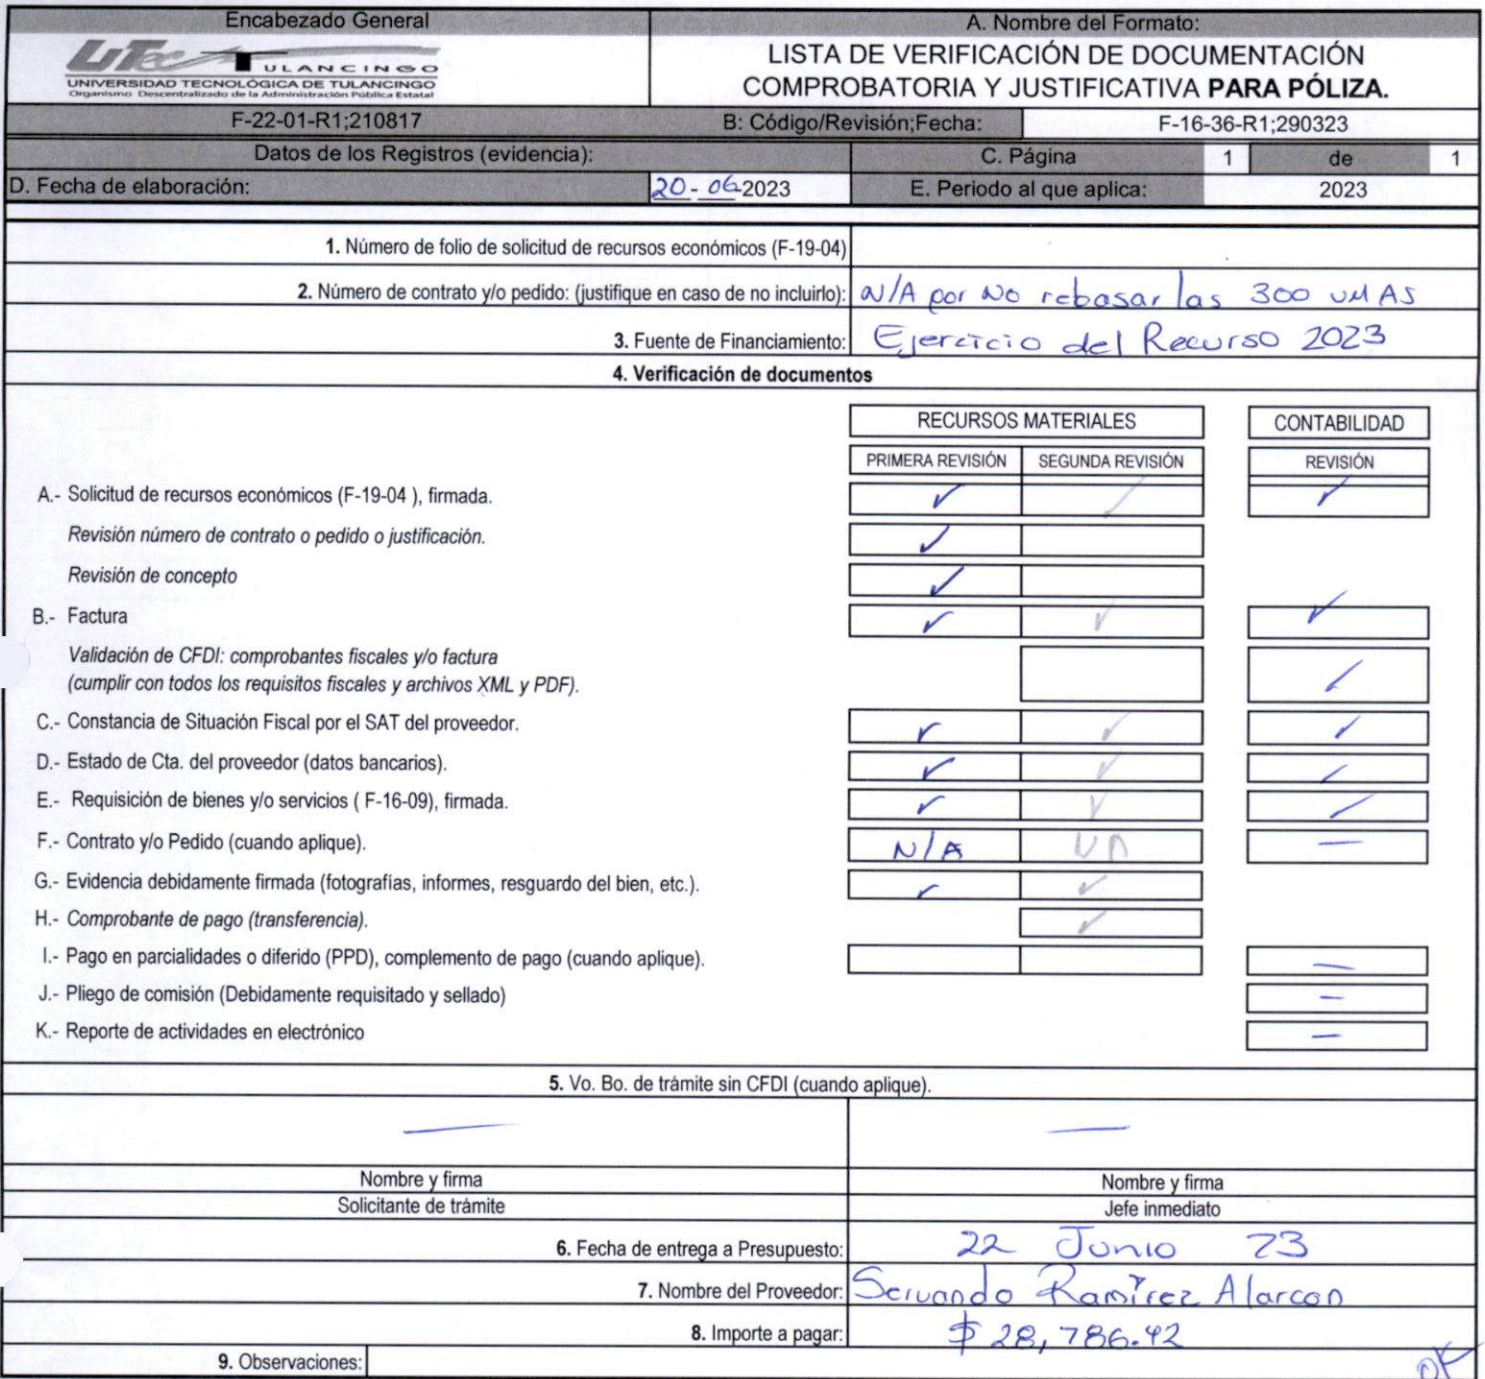 Encabezado General
A. Nombre del Formato:
UTec TULANCINGO
UNIVERSIDAD TECNOLÓGICA DE TULANCINGO
Organismo Descentralizado de la Administración Pública Estatal
LISTA DE VERIFICACIÓN DE DOCUMENTACIÓN
COMPROBATORIA Y JUSTIFICATIVA PARA PÓLIZA.
F-22-01-R1;210817 B: Código/Revisión;Fecha: F-16-36-R1;290323
Datos de los Registros (evidencia): C. Página 1 de 1
D. Fecha de elaboración: 20-06-2023 E. Periodo al que aplica: 2023
1. Número de folio de solicitud de recursos económicos (F-19-04)
2. Número de contrato y/o pedido: (justifique en caso de no incluirlo): N/A por No rebasar las 300 UMAS
3. Fuente de Financiamiento: Ejercicio del Recurso 2023
4. Verificación de documentos
RECURSOS MATERIALES CONTABILIDAD
PRIMERA REVISIÓN SEGUNDA REVISIÓN REVISIÓN
A.- Solicitud de recursos económicos (F-19-04 ), firmada. ✓ ✓ ✓
Revisión número de contrato o pedido o justificación. ✓
Revisión de concepto ✓
B.- Factura ✓ ✓ ✓
Validación de CFDI: comprobantes fiscales y/o factura
(cumplir con todos los requisitos fiscales y archivos XML y PDF). ✓
C.- Constancia de Situación Fiscal por el SAT del proveedor. ✓ ✓ ✓
D.- Estado de Cta. del proveedor (datos bancarios). ✓ ✓ ✓
E.- Requisición de bienes y/o servicios ( F-16-09), firmada. ✓ ✓ ✓
F.- Contrato y/o Pedido (cuando aplique). N/A —
G.- Evidencia debidamente firmada (fotografías, informes, resguardo del bien, etc.). ✓ ✓
H.- Comprobante de pago (transferencia). ✓
I.- Pago en parcialidades o diferido (PPD), complemento de pago (cuando aplique). —
J.- Pliego de comisión (Debidamente requisitado y sellado) —
K.- Reporte de actividades en electrónico —
5. Vo. Bo. de trámite sin CFDI (cuando aplique).
— —
Nombre y firma Nombre y firma
Solicitante de trámite Jefe inmediato
6. Fecha de entrega a Presupuesto: 22 Junio 23
7. Nombre del Proveedor: Servando Ramírez Alarcon
8. Importe a pagar: $ 28,786.42
9. Observaciones: OK